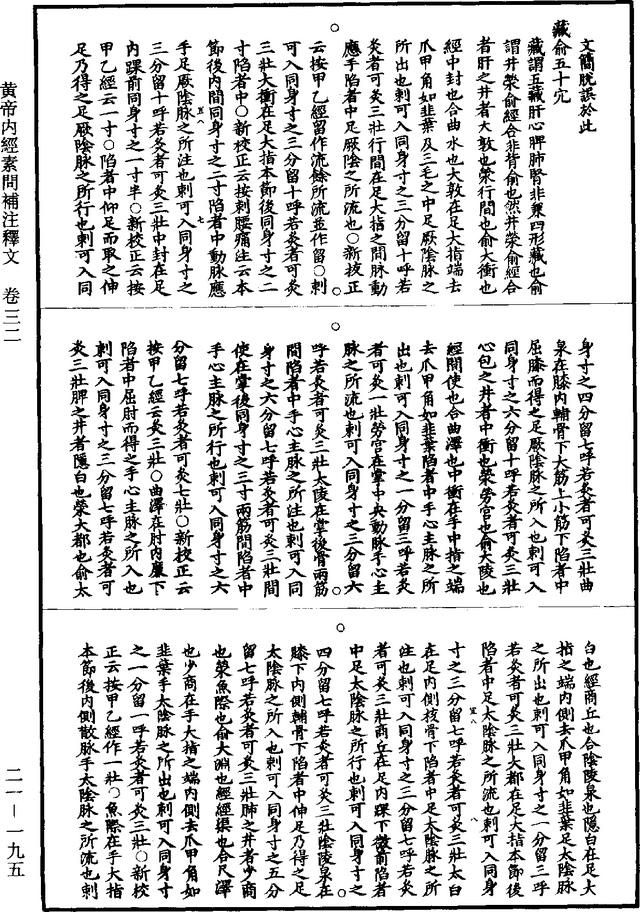 文簡脫誤於此
藏俞五十穴
藏謂五藏肝心脾肺腎非兼四形藏也俞
謂井滎俞經合非背俞也然井滎俞經合
者肝之井者大敦也滎行間也俞大衝也
經中封也合曲水也大敦在足大指端去
爪甲角如韭葉及三毛之中足厥陰脉之
所出也刺可入同身寸之三分留十呼若
灸者可灸三壯行間在足大指之間脉動
應手陷者中足厥陰之所流也○新校正
云按甲乙經留作流餘所流並作留○刺
可入同身寸之三分留十呼若灸者可灸
三壯大衝在足大指本節後同身寸之二
寸陷者中○新校正云按刺腰痛注云本
節後內間同身寸之二寸陷者中動脉應
手足厥陰脉之所注也刺可入同身寸之
三分留十呼若灸者可灸三壯中封在足
內踝前同身寸之一寸半○新校正云按
甲乙經云一寸○陷者中仰足而取之伸
足乃得之足厥陰脉之所行也刺可入同
身寸之四分留七呼若灸者可灸三壯曲
泉在膝內輔骨下大筋上小筋下陷者中
屈膝而得之足厥陰脉之所入也刺可入
同身寸之六分留十呼若灸者可灸三壯
心包之井者中衝也滎勞宫也俞大陵也
經間使也合曲澤也中衝在手中指之端
去爪甲角如韭葉陷者中手心主脉之所
出也刺可入同身寸之一分留三呼若灸
者可灸一壯勞宫在掌中央動脉手心主
脉之所流也刺可入同身寸之三分留六
呼若灸者可灸三壯大陵在掌後骨兩筋
間陷者中手心主脉之所注也刺可入同
身寸之六分留七呼若灸者可灸三壯間
使在掌後同身寸之三寸兩筋間陷者中
手心主脉之所行也刺可入同身寸之六
分留七呼若灸者可灸七壯○新校正云
按甲乙經云灸三壯○曲澤在肘內廉下
陷者中屈肘而得之手心主脉之所入也
刺可入同身寸之三分留七呼若灸者可
灸三壯脾之井者隱白也滎大都也俞太
白也經商丘也合陰陵泉也隱白在足大
指之端內側去爪甲角如韭葉足太陰脉
之所出也刺可入同身寸之一分留三呼
若灸者可灸三壯大都在足大指本節後
陷者中足太陰脉之所流也刺可入同身
寸之三分留七呼若灸者可灸三壯太白
在足內側核骨下陷者中足太陰脉之所
注也刺可入同身寸之三分留七呼若灸
者可灸三壯商丘在足內踝下微前陷者
中足太陰脉之所行也刺可入同身寸之
四分留七呼若灸者可灸三壯陰陵泉在
膝下內側輔骨下陷者中伸足乃得之足
太陰脉之所入也刺可入同身寸之五分
留七呼若灸者可灸三壯肺之井者少商
也滎魚際也俞大淵也經經渠也合尺澤
也少商在手大指之端內側去爪甲角如
韭葉手太陰脉之所出也刺可入同身寸
之一分留一呼若灸者可灸三壯○新校
正云按甲乙經作一壯○魚際在手大指
本節後內側散脉手太陰脉之所流也刺
黄帝内經素問補注釋文 卷三二
二一—一九五